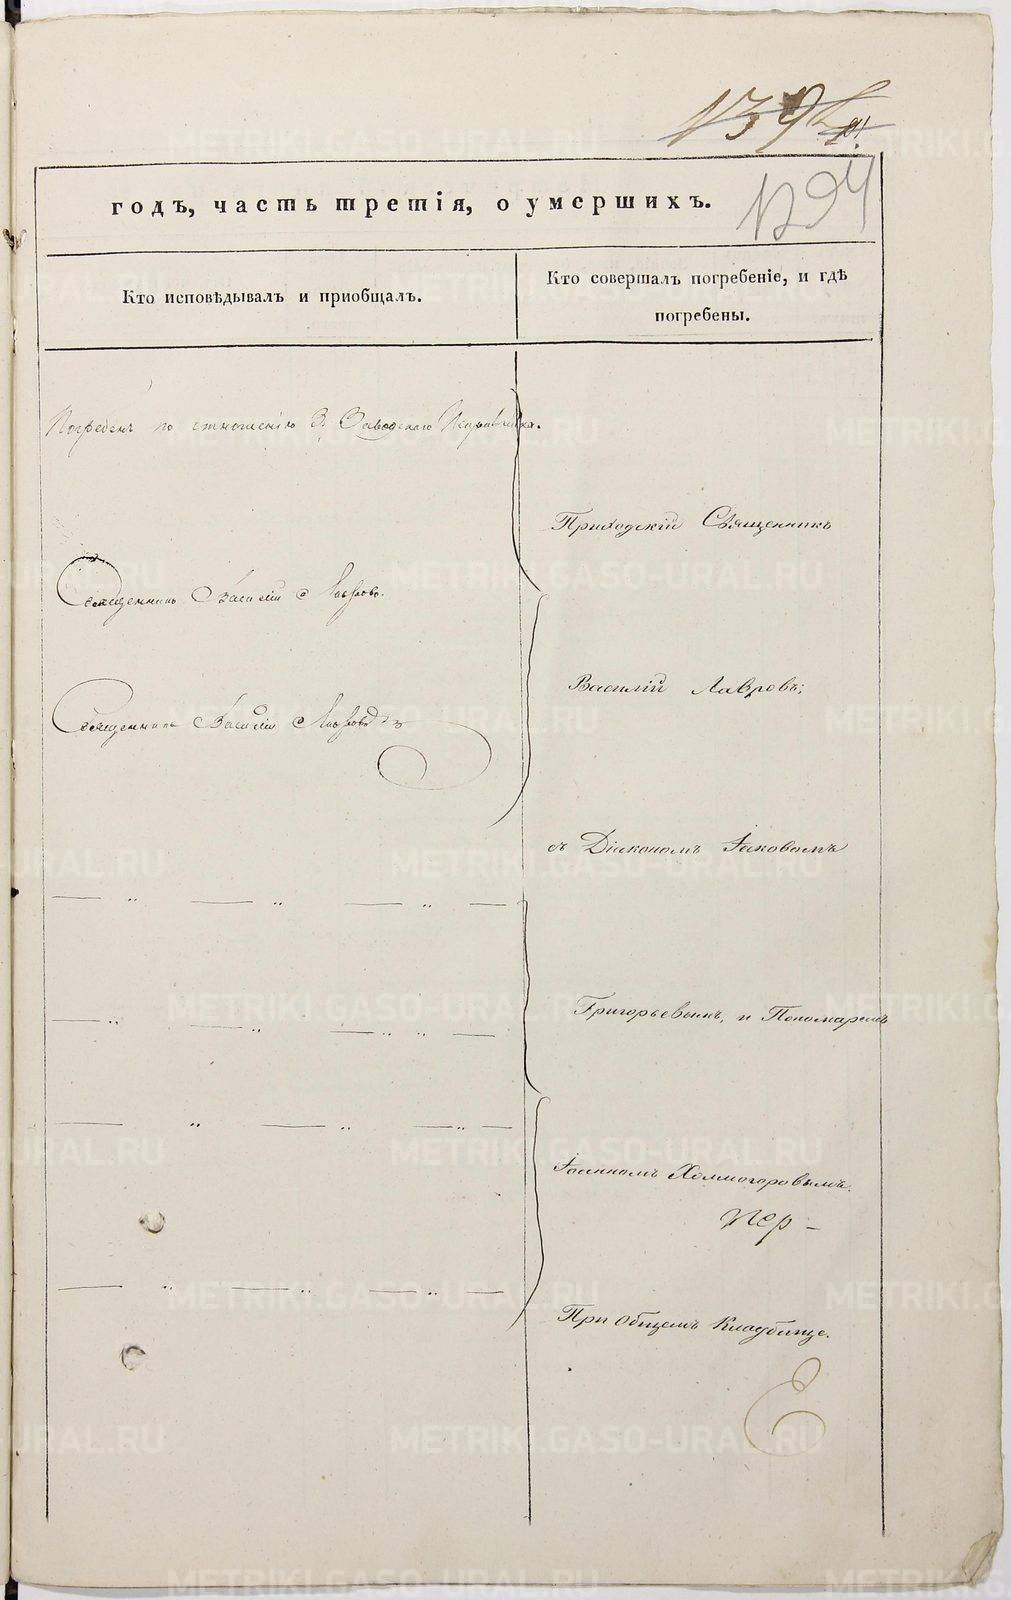 годъ, часть третія, о умершихъ.
Кто исповѣдывалъ и пріобщалъ.
Кто совершалъ погребеніе, и гдѣ
погребены.
Погребенъ по отношенію З. Заводскаго Исправника.
Приходскій Священникъ
Священникъ Василій Лавровъ.
Василій Лавровъ;
Священникъ Василій Лавровъ
съ Діакономъ Іаковомъ
Григорьевымъ, и Пономаремъ
Іоанномъ Холмогоровымъ.
При общемъ Кладбище.
METRIKI.GASO-URAL.RU